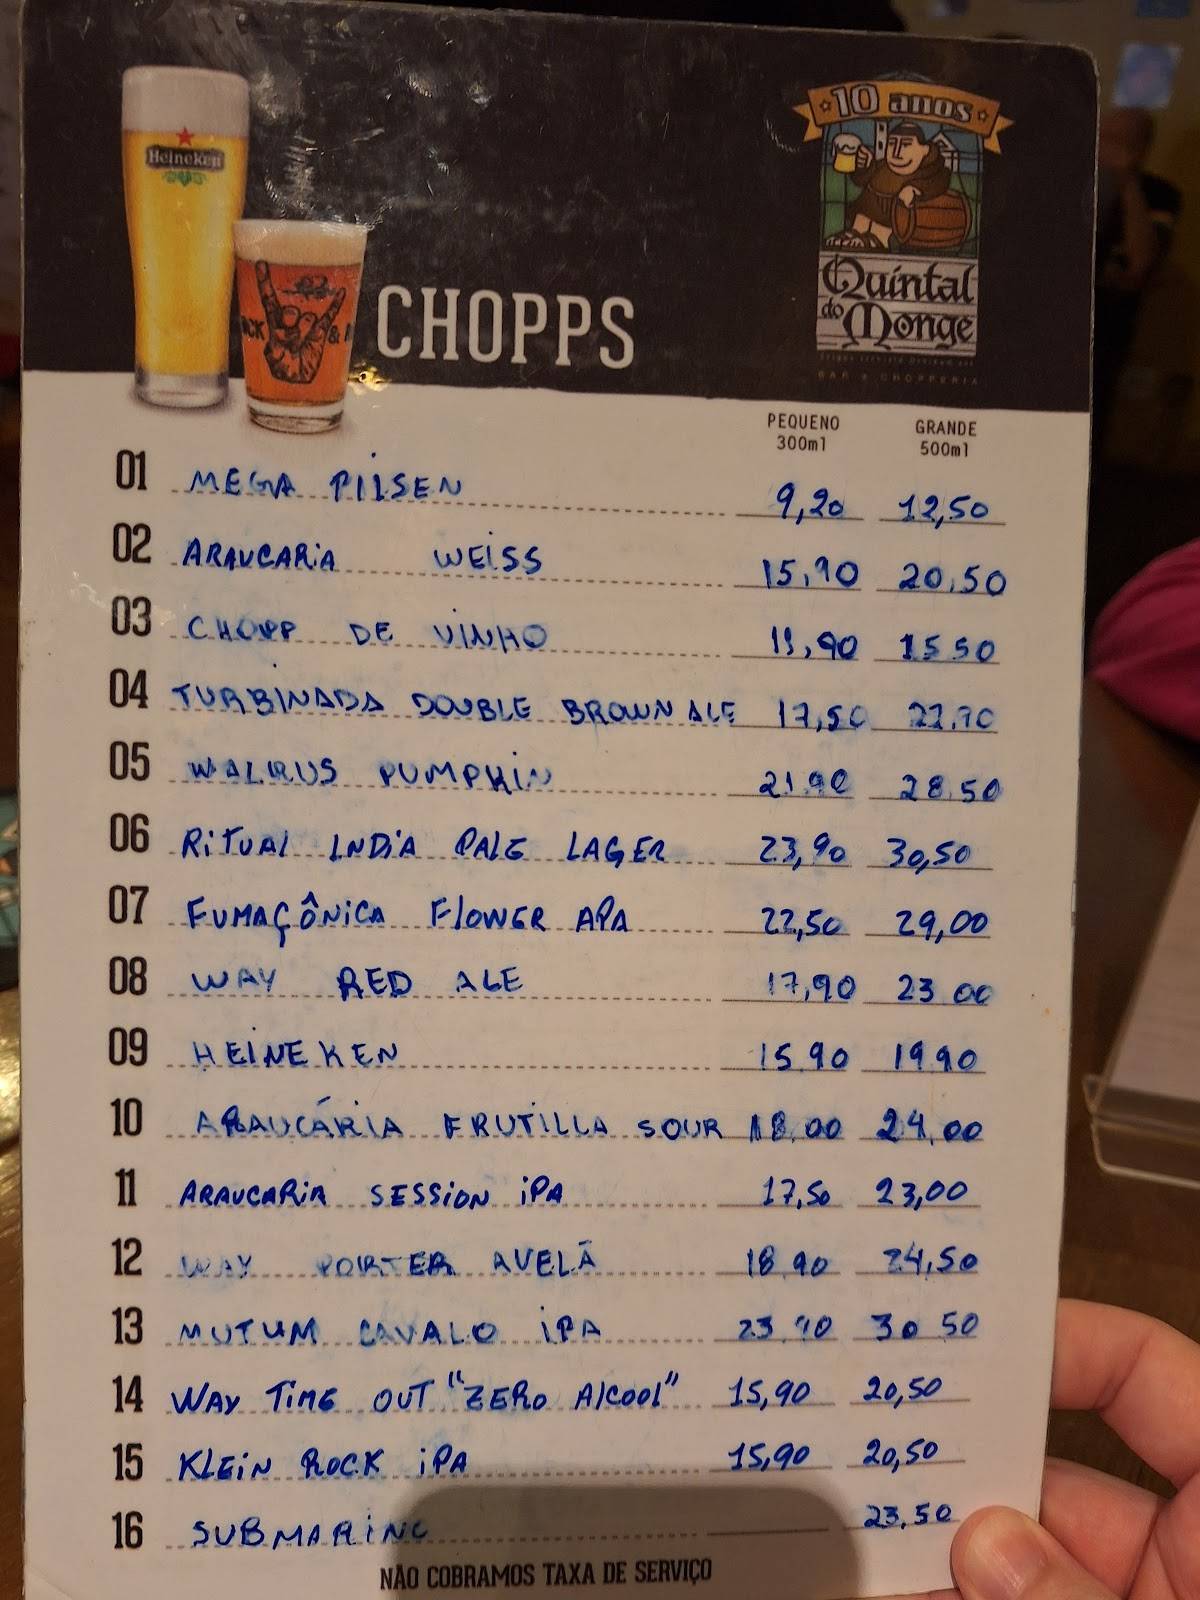 10 anos
Heineken
Quintal
do Monge
BAR e CHOPPERIA
CHOPPS
PEQUENO GRANDE
300ml 500ml
01 MEGA PILSEN 9,20 12,50
02 ARAUCARIA WEISS 15,90 20,50
03 CHOPP DE VINHO 11,90 15 50
04 TURBINADA DOUBLE BROWN ALE 17,50
05 WALRUS PUMPKIN 21.90 28.50
06 RITUAL INDIA PALE LAGER 23,90 30,50
07 FUMAÇÔNICA FLOWER APA 22,50 29,00
08 WAY RED ALE 17,90 23 00
09 HEINEKEN 15 90 19 90
10 ARAUCÁRIA FRUTILLA SOUR 18.00 24,00
11 ARAUCARIA SESSION IPA 17,50 23,00
12 WAY PORTER AVELÃ 18 90 24,50
13 MUTUM CAVALO IPA 23.90 30 50
14 WAY TIME OUT "ZERO Alcool" 15,90 20,50
15 KLEIN ROCK IPA 15,90 20,50
16 SUBMARINO 23,50
NÃO COBRAMOS TAXA DE SERVIÇO